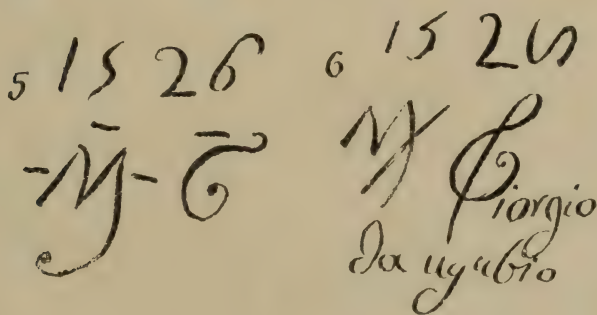 5 1526
-M̄- Ḡ
6 1525
M Giorgio
da ugubio